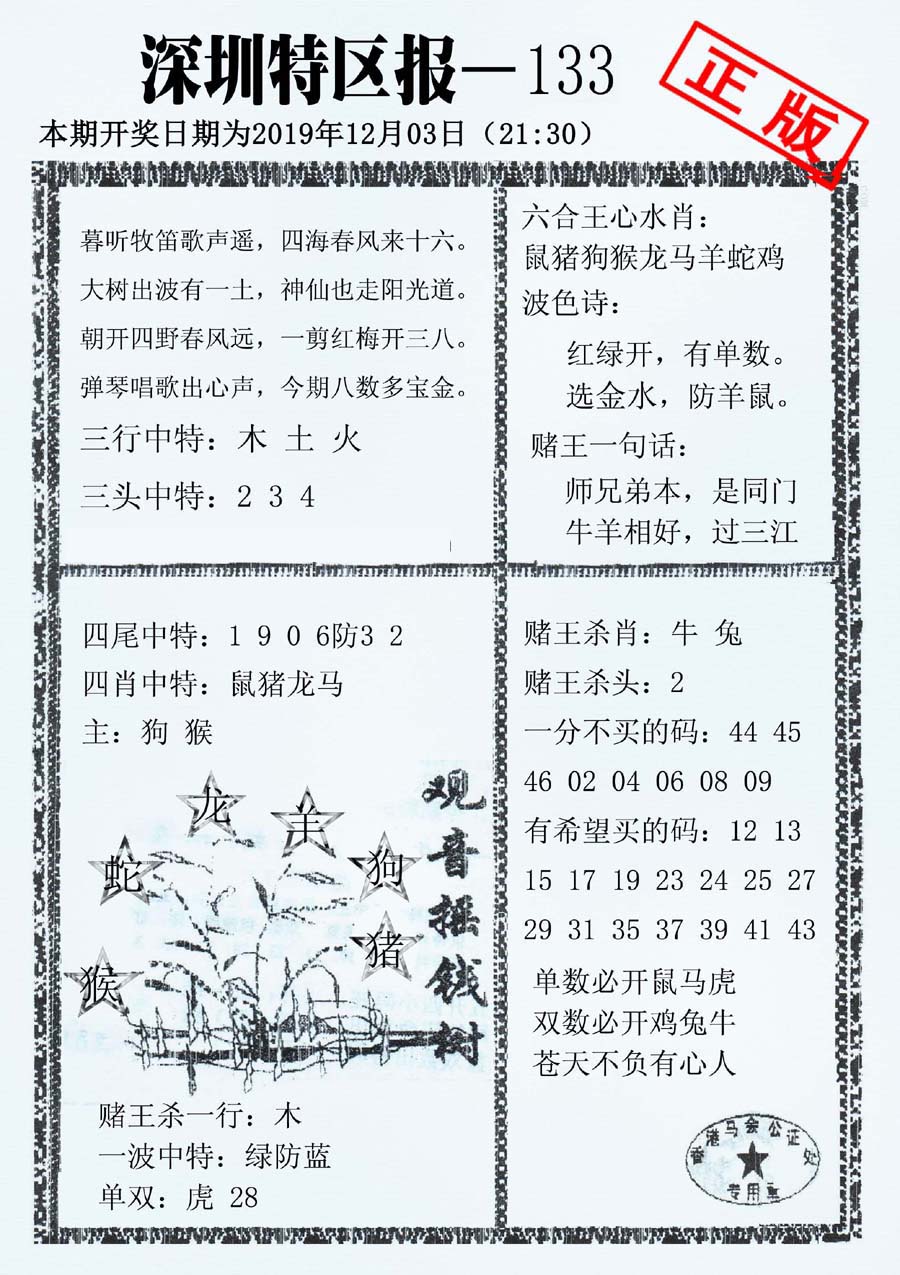 深圳特区报—133
正版
本期开奖日期为2019年12月03日（21:30）
暮听牧笛歌声遥，四海春风来十六。
大树出波有一土，神仙也走阳光道。
朝开四野春风远，一剪红梅开三八。
弹琴唱歌出心声，今期八数多宝金。
三行中特：木 土 火
三头中特：2 3 4
六合王心水肖：
鼠猪狗猴龙马羊蛇鸡
波色诗：
红绿开，有单数。
选金水，防羊鼠。
赌王一句话：
师兄弟本，是同门
牛羊相好，过三江
四尾中特：1 9 0 6防3 2
四肖中特：鼠猪龙马
主：狗 猴
龙
羊
蛇
狗
猪
猴
观音摇钱树
赌王杀一行：木
一波中特：绿防蓝
单双：虎 28
赌王杀肖：牛 兔
赌王杀头：2
一分不买的码：44 45
46 02 04 06 08 09
有希望买的码：12 13
15 17 19 23 24 25 27
29 31 35 37 39 41 43
单数必开鼠马虎
双数必开鸡兔牛
苍天不负有心人
香港马会公证处
专用章